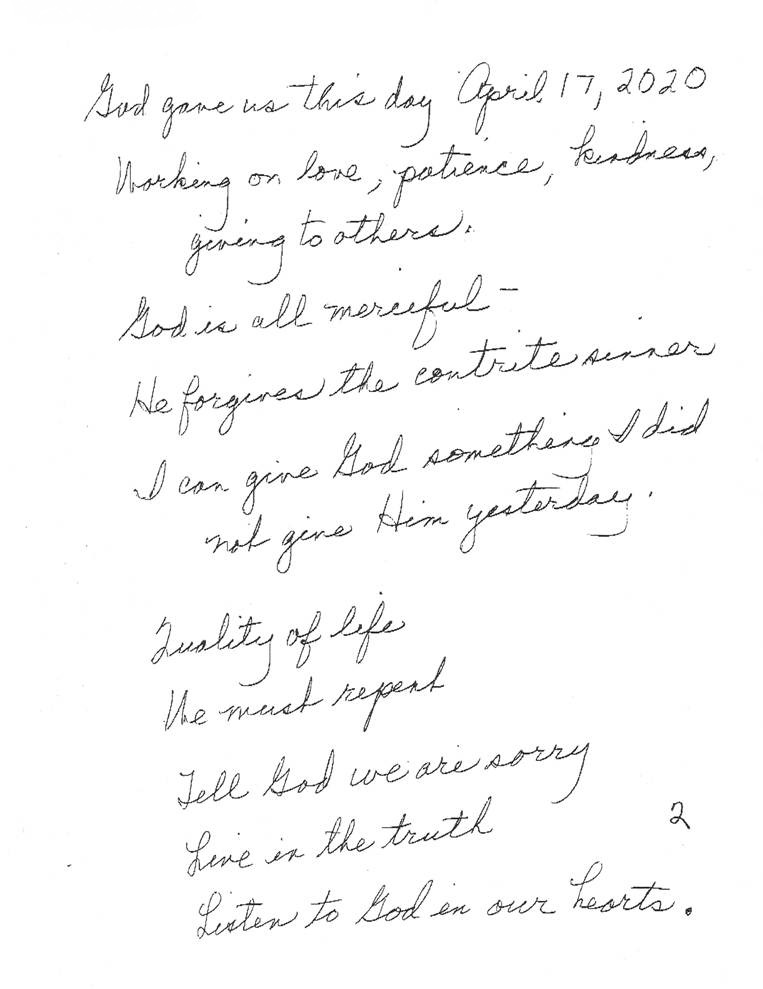 God gave us this day April 17, 2020
Working on love, patience, kindness,
giving to others.
God is all merciful -
He forgives the contrite sinner
I can give God something I did
not give Him yesterday.
Quality of life
We must repent
Tell God we are sorry
Live in the truth
2
Listen to God in our hearts.